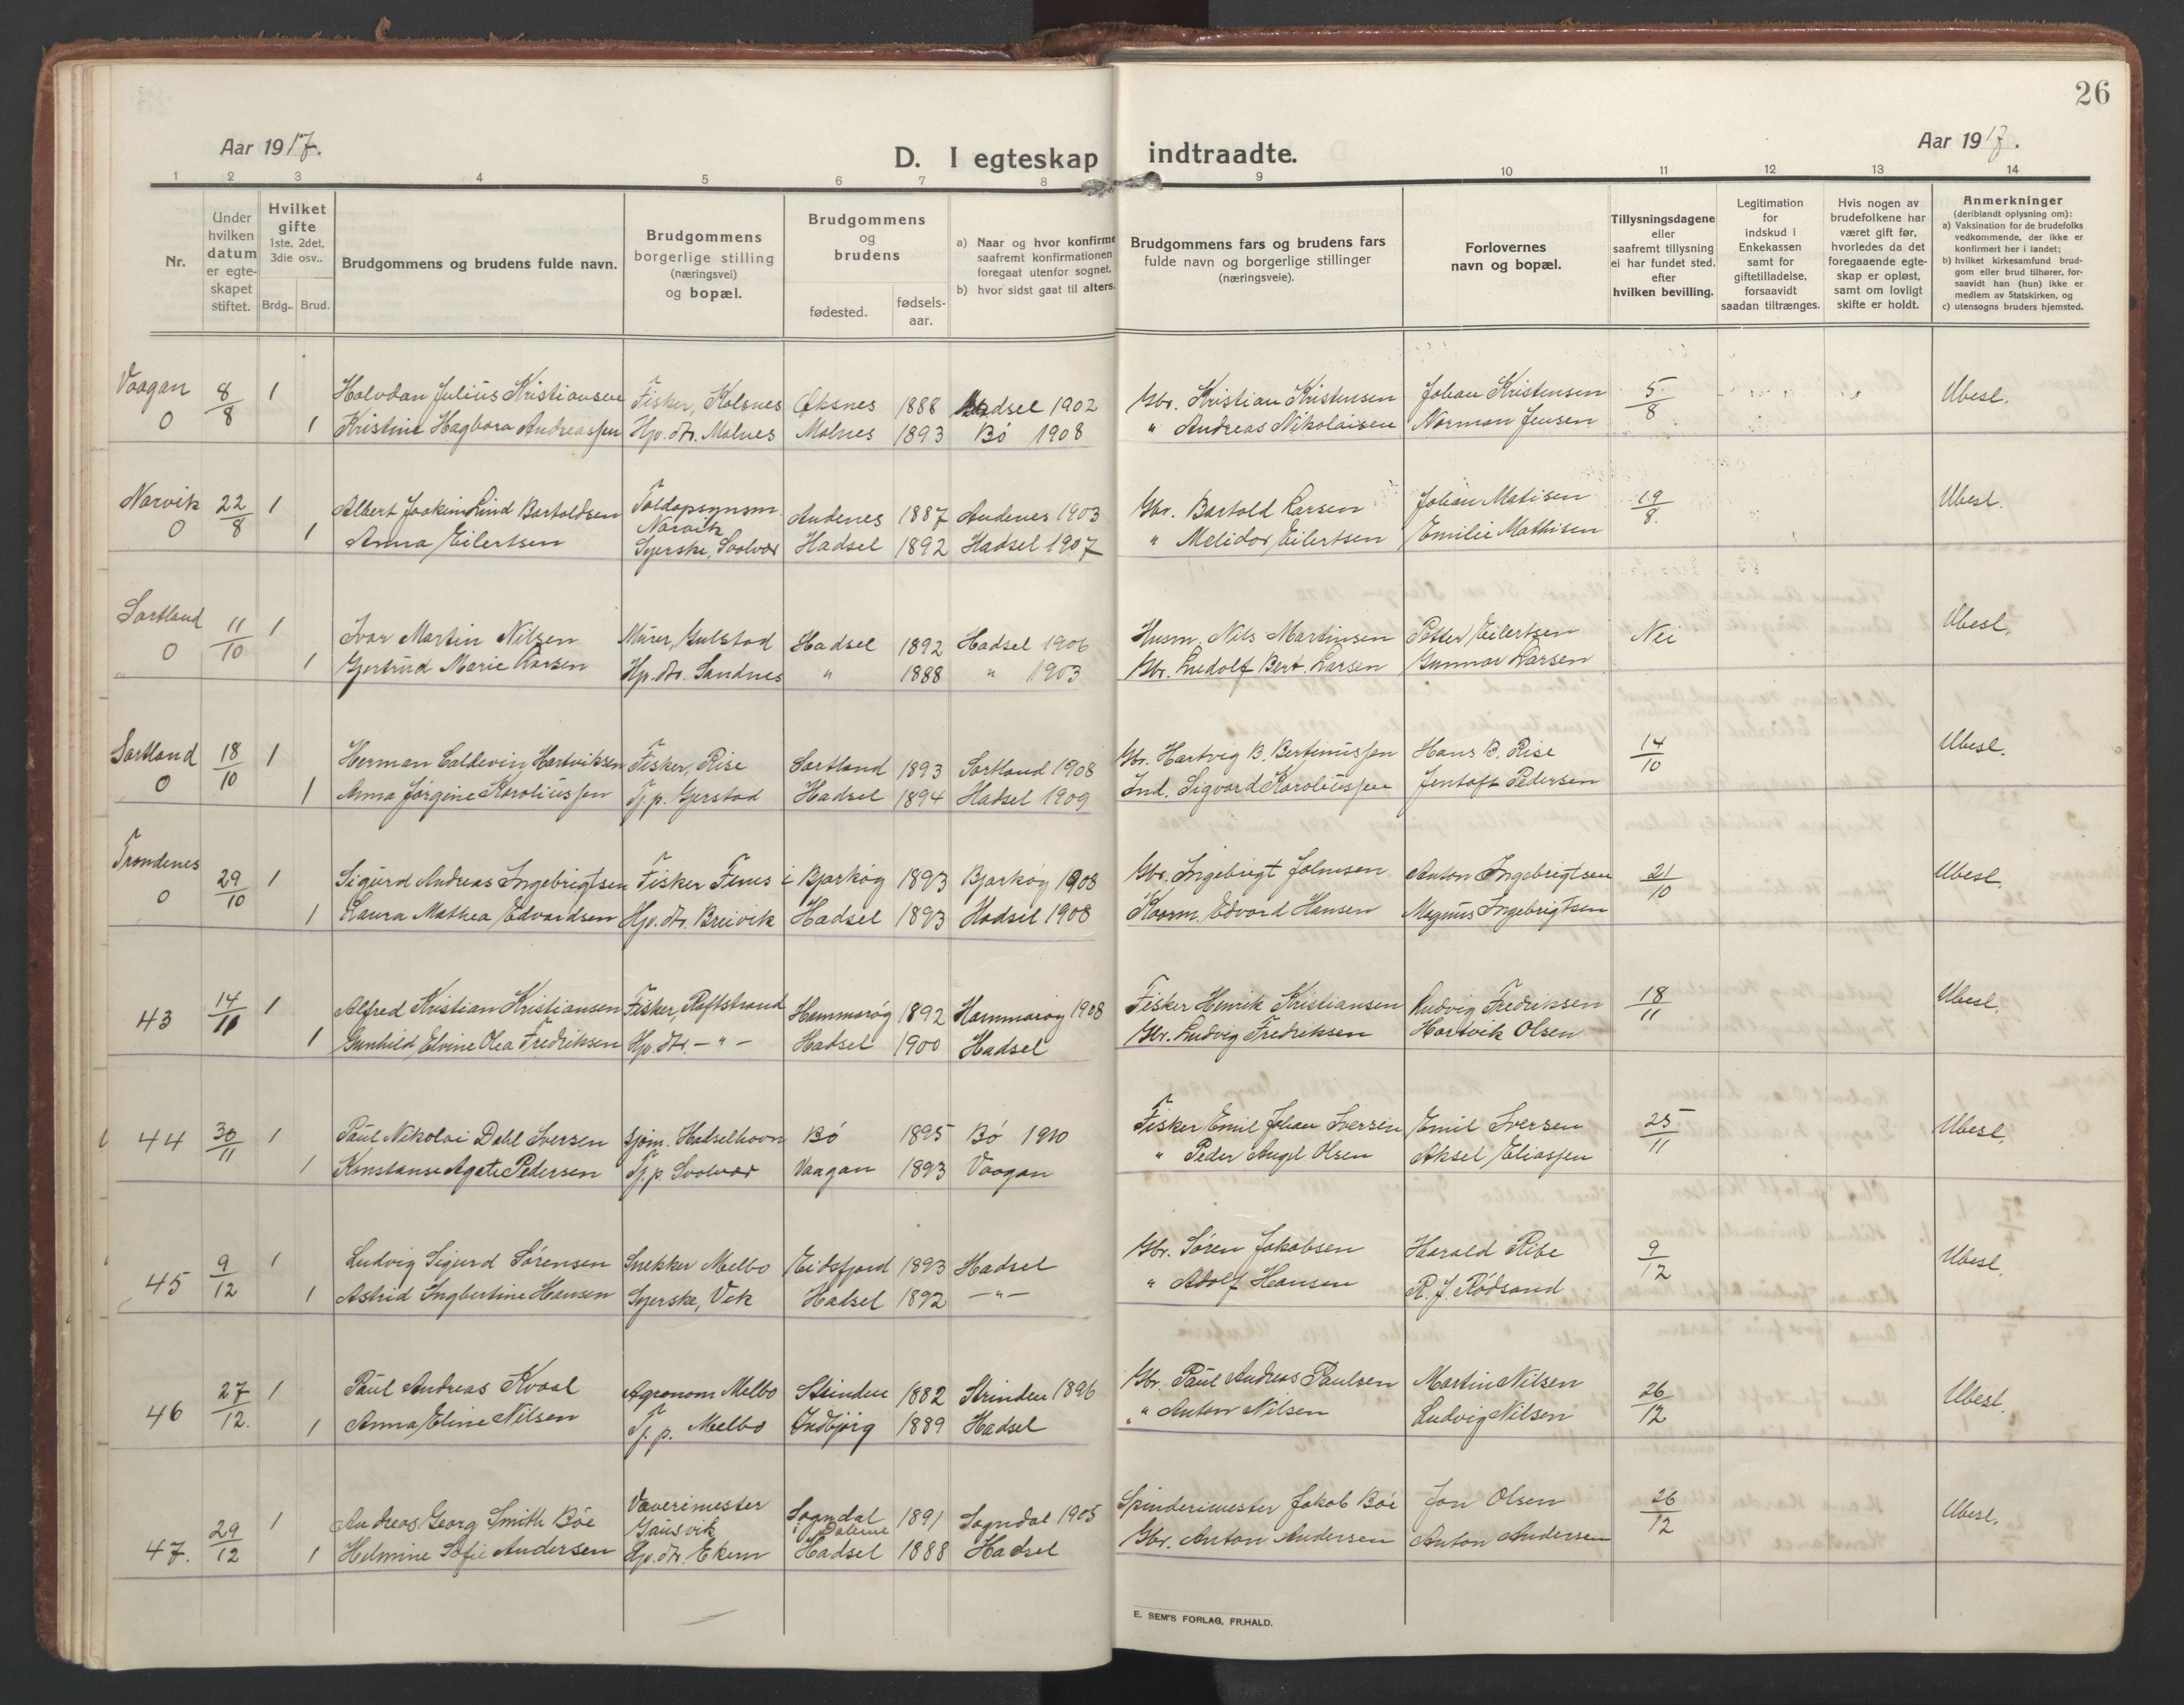 26
Aar 1917.
D. I egteskap indtraadte.
Aar 1917.
1 2 3 4 5 6 7 8 9 10 11 12 13 14
Nr.
Under hvilken datum er egte-skapet stiftet.
Hvilket gifte 1ste, 2det, 3die osv..
Brdg.. Brud.
Brudgommens og brudens fulde navn.
Brudgommens borgerlige stilling (næringsvei) og bopæl.
Brudgommens og brudens
fødested.
fødsels-aar.
a) Naar og hvor konfirme
saafremt konfirmationen
foregaat utenfor sognet,
b) hvor sidst gaat til alters.
Brudgommens fars og brudens fars
fulde navn og borgerlige stillinger
(næringsveie).
Forlovernes
navn og bopæl.
Tillysningsdagene
eller
saafremt tillysning
ei har fundet sted,
efter
hvilken bevilling.
Legitimation
for
indskud i
Enkekassen
samt for
giftetilladelse,
forsaavidt
saadan tiltrænges.
Hvis nogen av
brudefolkene har
været gift før,
hvorledes da det
foregaaende egte-
skap er opløst,
samt om lovligt
skifte er holdt.
Anmerkninger
(deriblandt oplysning om):
a) Vaksination for de brudefolks
vedkommende, der ikke er
konfirmert her i landet;
b) hvilket kirkesamfund brud-
gom eller brud tilhører, for-
saavidt han (hun) ikke er
medlem av Statskirken, og
c) utensogns bruders hjemsted.
Vaagan 8/8 1 Halvdan Julius Kristiansen Fisker, Kolsnes Øksnes 1888 Hadsel 1902 Gbr. Kristian Kristensen Johan Kristensen 5/8 Ubesl.
0 1 Kristine Hagbora Andreassen Hp. dtr. Malnes Malnes 1893 Bö 1908 " Andreas Nikolaisen Norman Jensen
Narvik 22/8 1 Albert Joakim Lind Bartoldsen Toldopsynsm. Narvik Andenes 1887 Andenes 1903 Gbr. Bartold Larsen Johan Matisen 19/8. Ubesl.
0 1 Anna Eilertsen Syerske, Svolvær Hadsel 1892 Hadsel 1907 " Melidor Eilertsen Emilie Mathisen
Sortland 11/10 1 Ivar Martin Nilsen Murer, Gulstad Hadsel 1892 Hadsel 1906 Husm. Nils Martinsen Petter Eilertsen Nei Ubesl.
0 1 Gjertrud Marie Larsen Hp. dtr. Sandnes " 1888 " 1903 Gbr. Ludolf Bert. Larsen Gunnar Larsen
Sortland 18/10 1 Herman Coldevin Hartviksen Fisker, Rise Sortland 1893 Sortland 1908 Gbr. Hartvig B. Bertinussen Hans B. Rise 14/10 Ubesl.
0 1 Anna Jørgine Karoliussen Tj. p. Gjerstad Hadsel 1894 Hadsel 1909 Ind. Sigvard Karoliussen Jentoft Pedersen
Trondenes 29/10 1 Sigurd Andreas Ingebrigtsen Fisker Fines i Bjarkøg 1893 Bjarkøg 1908 Gbr. Ingebrigt Johnsen Anton Ingebrigtsen 21/10 Ubesl.
0 1 Laura Mathea Edvardsen Hp. dtr. Breivik Hadsel 1893 Hadsel 1908 Edvard Hansen Magnus Ingebrigtsen
43 14/11 1 Alfred Kristian Kristiansen Fisker, Raftstrand Hammarøy 1892 Hammarøy 1908 Fisker Henrik Kristiansen Ludvig Fredriksen 18/11 Ubesl.
1 Gunhild Elvine Olea Fredriksen Hp. dtr. - " - Hadsel 1900 Hadsel Gbr. Ludvig Fredriksen Hartvik Olsen
44 30/11 1 Paul Nikolai Dahl Iversen Sjøm. Hadselhavn Bö 1895 Bö 1910 Fisker Emil Johan Iversen Emil Iversen 25/11 Ubesl.
1 Konstanse Agate Pedersen Tj. p. Svolvær Vaagan 1893 Vaagan " Peder Angel Olsen Aksel Eliassen
45 9/12 1 Ludvig Sigurd Sørensen Snekker Melbo Eidsfjord 1893 Hadsel Gbr. Søren Jakobsen Harald Ribe 9/12 Ubesl.
1 Astrid Ingbertine Hansen Syerske, Vik Hadsel 1892 - " - " Adolf Hansen R. J. Rødsand
46 27/12. 1 Paul Andreas Kvaal Agronom Melbo Strinden 1882 Strinden 1896 Gbr. Paul Andreas Paulsen Martin Nilsen 26/12 Ubesl.
1 Anna Eline Nilsen Tj. p. Melbo Indbjörg 1889 Hadsel " Anton Nilsen Ludvig Nilsen
47. 29/12 1 Andreas Georg Smith Böe Væverimester Gausvik Sogndal i Dalene 1891 Sogndal 1905 Spinderimester Jakob Böe Jon Olsen 26/12 Ubesl.
1 Helmine Sofie Andersen Hp. dtr. Ekern Hadsel 1888 Hadsel Gbr. Anton Andersen Anton Andersen
E. SEM'S FORLAG, FR.HALD.